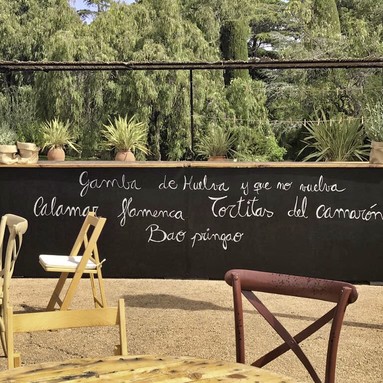 Gamba de Huelva y que no vuelva
Calamar flamenca Tortitas del camarón
Bao pringao